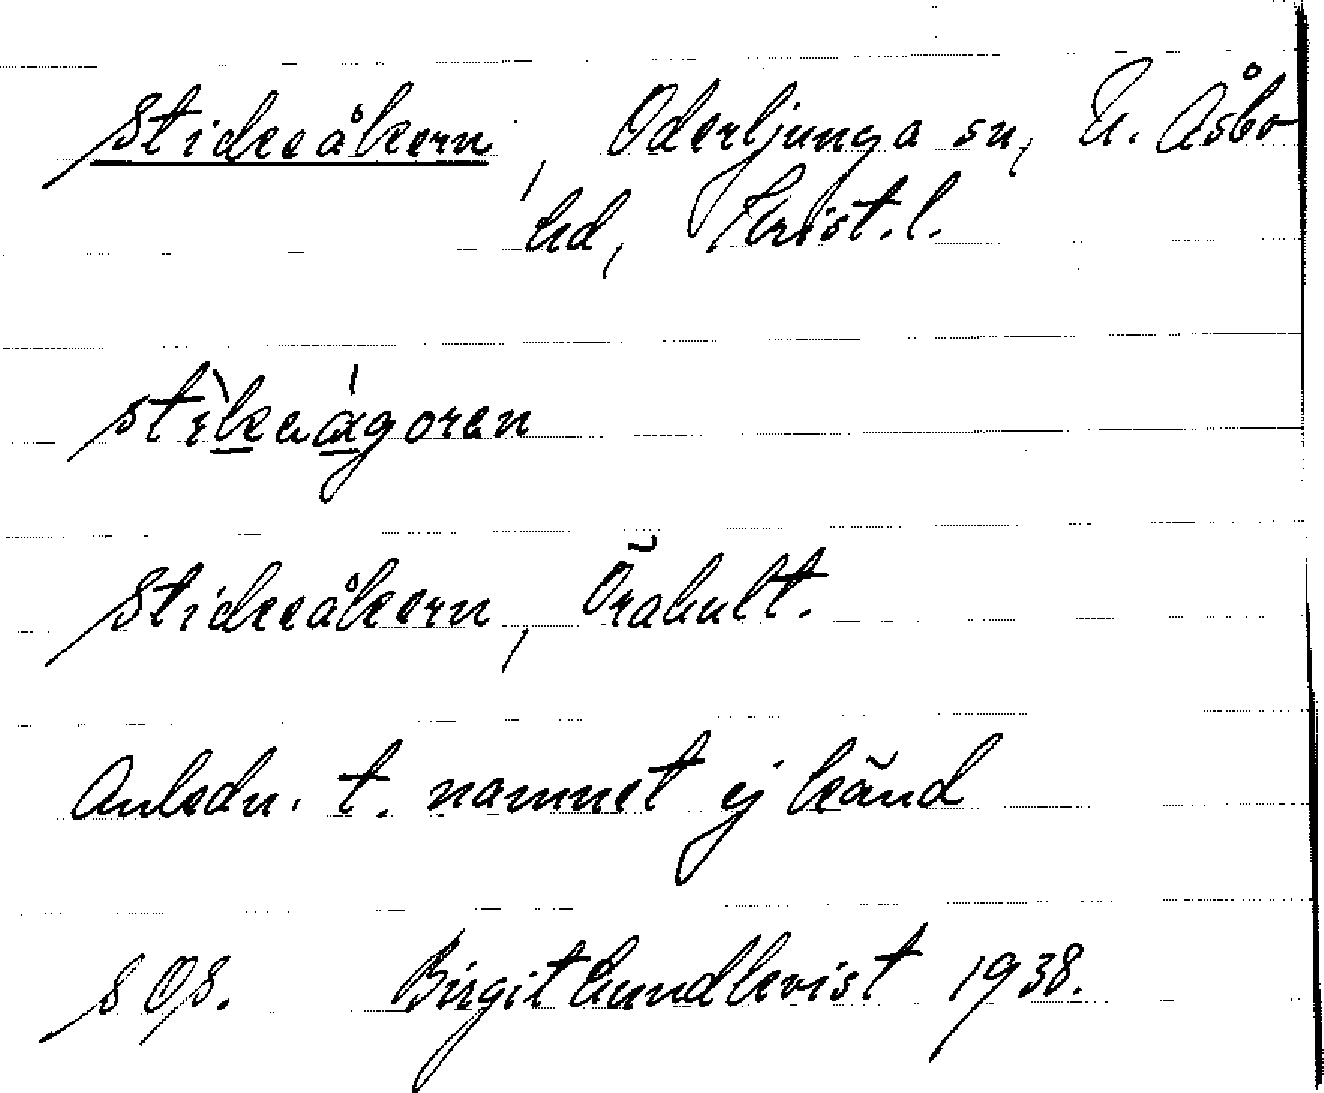 Stickeåkern, Oderljunga sn, N. Åsbo
hd, Krist. l.
stìkeágoren
Stickeåkern, Örahult.
Anledn. t. namnet ej känd
Birgit Lundkvist 1938.